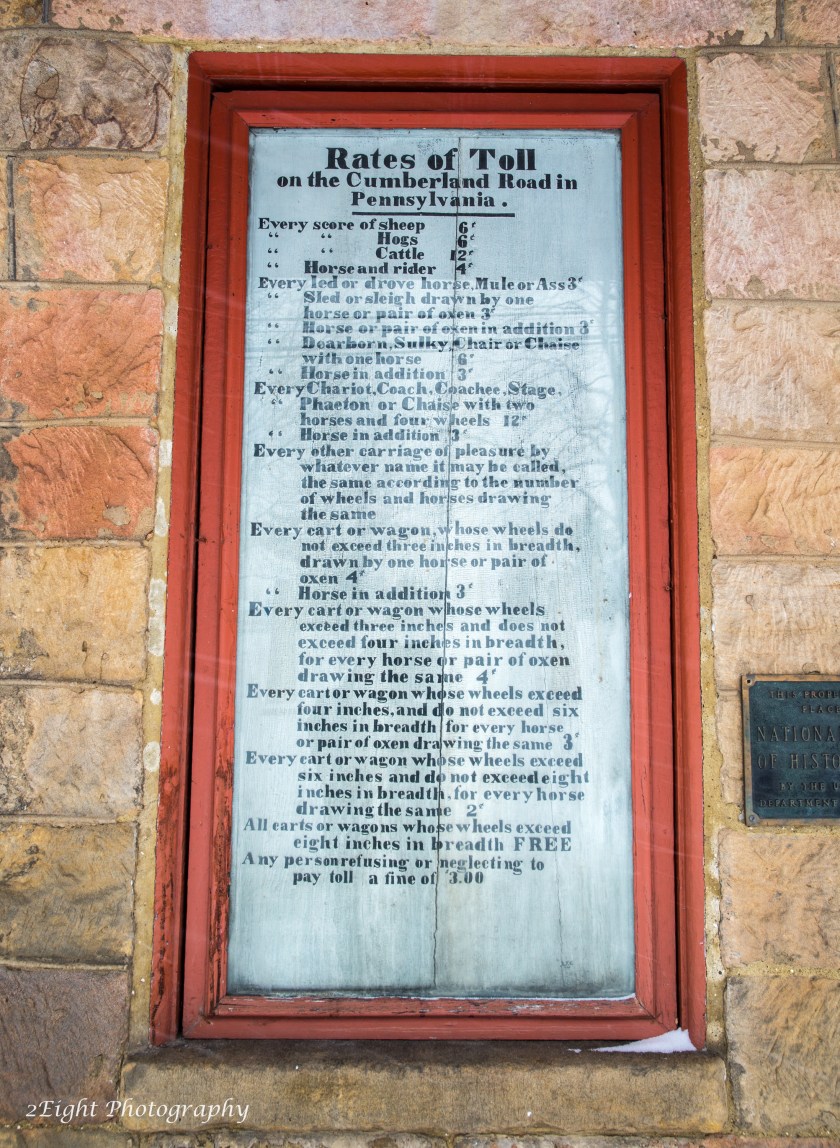 Rates of Toll
on the Cumberland Road in
Pennsylvania.
Every score of sheep 6¢
“ “ Hogs 6¢
“ “ Cattle 12¢
“ Horse and rider 4¢
Every led or drove horse, Mule or Ass 3¢
“ Sled or sleigh drawn by one
horse or pair of oxen 3¢
“ Horse or pair of oxen in addition 3¢
“ Dearborn, Sulky, Chair or Chaise
with one horse 6¢
“ Horse in addition 3¢
Every Chariot, Coach, Coachee, Stage,
“ Phaeton or Chaise with two
horses and four wheels 12¢
“ Horse in addition 3¢
Every other carriage of pleasure by
whatever name it may be called,
the same according to the number
of wheels and horses drawing
the same
Every cart or wagon, whose wheels do
not exceed three inches in breadth,
drawn by one horse or pair of
oxen 4¢
“ Horse in addition 3¢
Every cart or wagon whose wheels
exceed three inches and does not
exceed four inches in breadth,
for every horse or pair of oxen
drawing the same 4¢
Every cart or wagon whose wheels exceed
four inches, and do not exceed six
inches in breadth for every horse
or pair of oxen drawing the same 3¢
Every cart or wagon whose wheels exceed
six inches and do not exceed eight
inches in breadth, for every horse
drawing the same 2¢
All carts or wagons whose wheels exceed
eight inches in breadth FREE
Any person refusing or neglecting to
pay toll a fine of $3.00
THIS
NATIONAL
OF
BY THE
DEPARTMENT
2Eight Photography